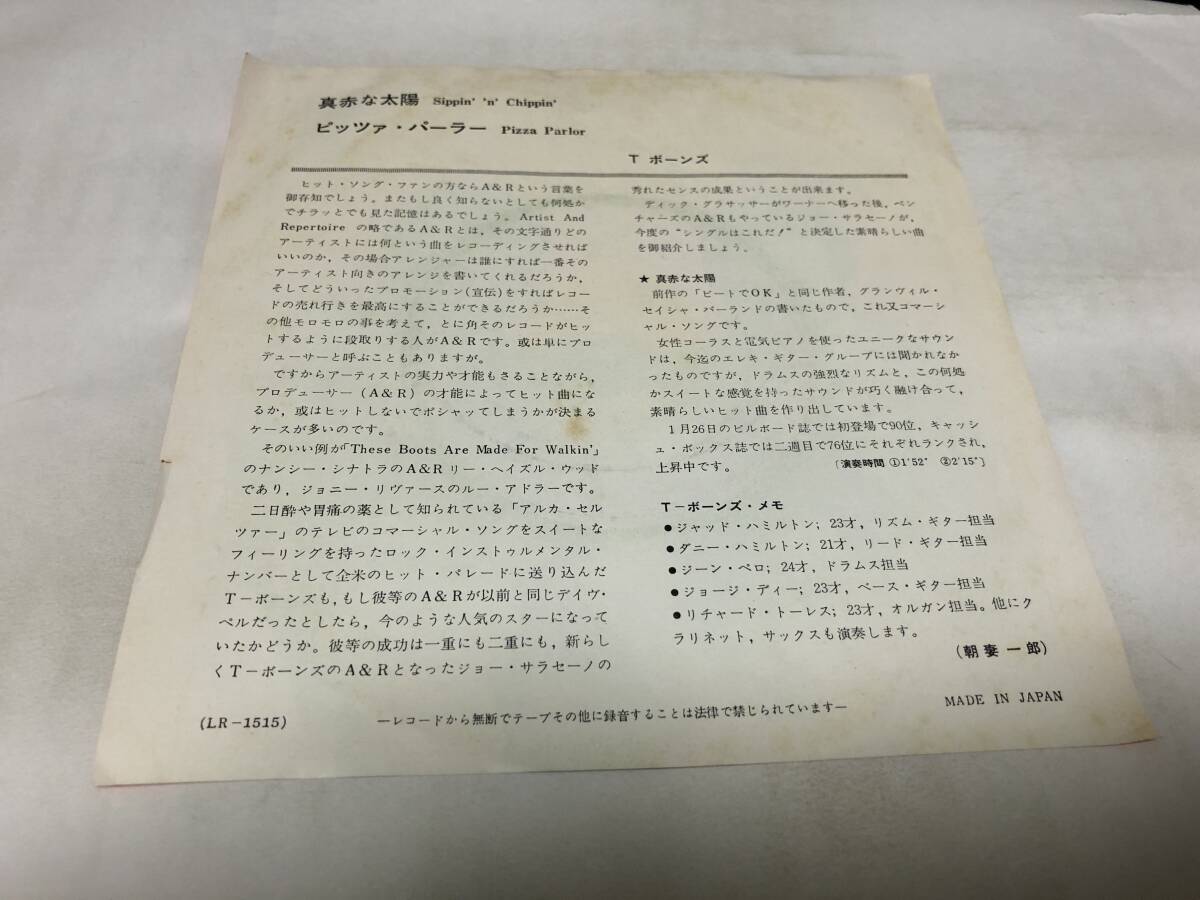 真赤な太陽 Sippin' 'n' Chippin'
ピッツァ・パーラー Pizza Parlor
T ボーンズ
ヒット・ソング・ファンの方ならA&Rという言葉を
御存知でしょう。またもし良く知らないとしても何処か
でチラッとでも見た記憶はあるでしょう。Artist And
Repertoire の略であるA&Rとは，その文字通りどの
アーティストには何という曲をレコーディングさせれば
いいのか，その場合アレンジャーは誰にすれば一番その
アーティスト向きのアレンジを書いてくれるだろうか，
そしてどういったプロモーション(宣伝)をすればレコー
ドの売れ行きを最高にすることができるだろうか……そ
の他モロモロの事を考えて，とに角そのレコードがヒッ
トするように段取りする人がA&Rです。或は単にプロ
デューサーと呼ぶこともありますが。
ですからアーティストの実力や才能もさることながら，
プロデューサー（A&R）の才能によってヒット曲にな
るか，或はヒットしないでボシャッてしまうかが決まる
ケースが多いのです。
そのいい例が「These Boots Are Made For Walkin'」
のナンシー・シナトラのA&R リー・ヘイズル・ウッド
であり，ジョニー・リヴァースのルー・アドラーです。
二日酔や胃痛の薬として知られている「アルカ・セル
ツァー」のテレビのコマーシャル・ソングをスイートな
フィーリングを持ったロック・インストゥルメンタル・
ナンバーとして全米のヒット・パレードに送り込んだ
T－ボーンズも，もし彼等のA&Rが以前と同じデイヴ・
ペルだったとしたら，今のような人気のスターになって
いたかどうか。彼等の成功は一重にも二重にも，新らし
くT－ボーンズのA&Rとなったジョー・サラセーノの
秀れたセンスの成果ということが出来ます。
ディック・グラサッサーがワーナーへ移った後，ベン
チャーズのA&Rもやっているジョー・サラセーノが，
今度の“シングルはこれだ！”と決定した素晴らしい曲
を御紹介しましょう。
★ 真赤な太陽
前作の「ビートでOK」と同じ作者，グランヴィル・
セイシャ・バーランドの書いたもので，これ又コマーシ
ャル・ソングです。
女性コーラスと電気ピアノを使ったユニークなサウン
ドは，今迄のエレキ・ギター・グループには聞かれなか
ったものですが，ドラムスの強烈なリズムと，この何処
かスイートな感覚を持ったサウンドが巧く融け合って，
素晴らしいヒット曲を作り出しています。
1月26日のビルボード誌では初登場で90位，キャッシ
ュ・ボックス誌では二週目で76位にそれぞれランクされ，
上昇中です。 〔演奏時間 ①1'52" ②2'15"〕
T－ボーンズ・メモ
●ジャッド・ハミルトン；23才，リズム・ギター担当
●ダニー・ハミルトン；21才，リード・ギター担当
●ジーン・ペロ；24才，ドラムス担当
●ジョージ・ディー；23才，ベース・ギター担当
●リチャード・トーレス；23才，オルガン担当。他にク
ラリネット，サックスも演奏します。
（朝妻一郎）
(LR－1515)
―レコードから無断でテープその他に録音することは法律で禁じられています―
MADE IN JAPAN